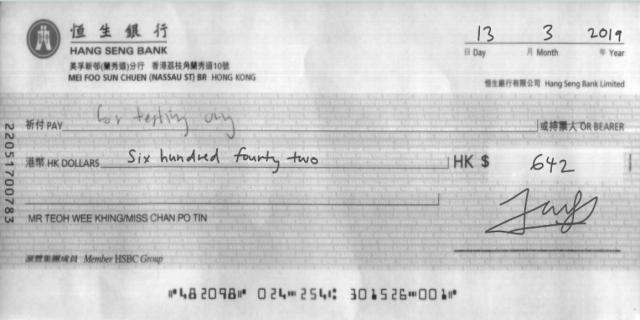 恒生銀行
HANG SENG BANK
美孚新邨(蘭秀道)分行 香港荔枝角蘭秀道10號
MEI FOO SUN CHUEN (NASSAU ST) BR HONG KONG
13 3 2019
日 Day 月 Month 年 Year
恒生銀行有限公司 Hang Seng Bank Limited
祈付 PAY for testing only 或持票人 OR BEARER
港幣 HK DOLLARS Six hundred fourty two HK $ 642
MR TEOH WEE KHING/MISS CHAN PO TIN
滙豐集團成員 Member HSBC Group
22051700783
⑈482098⑈ 024⑉254⑆ 301526⑉001⑈